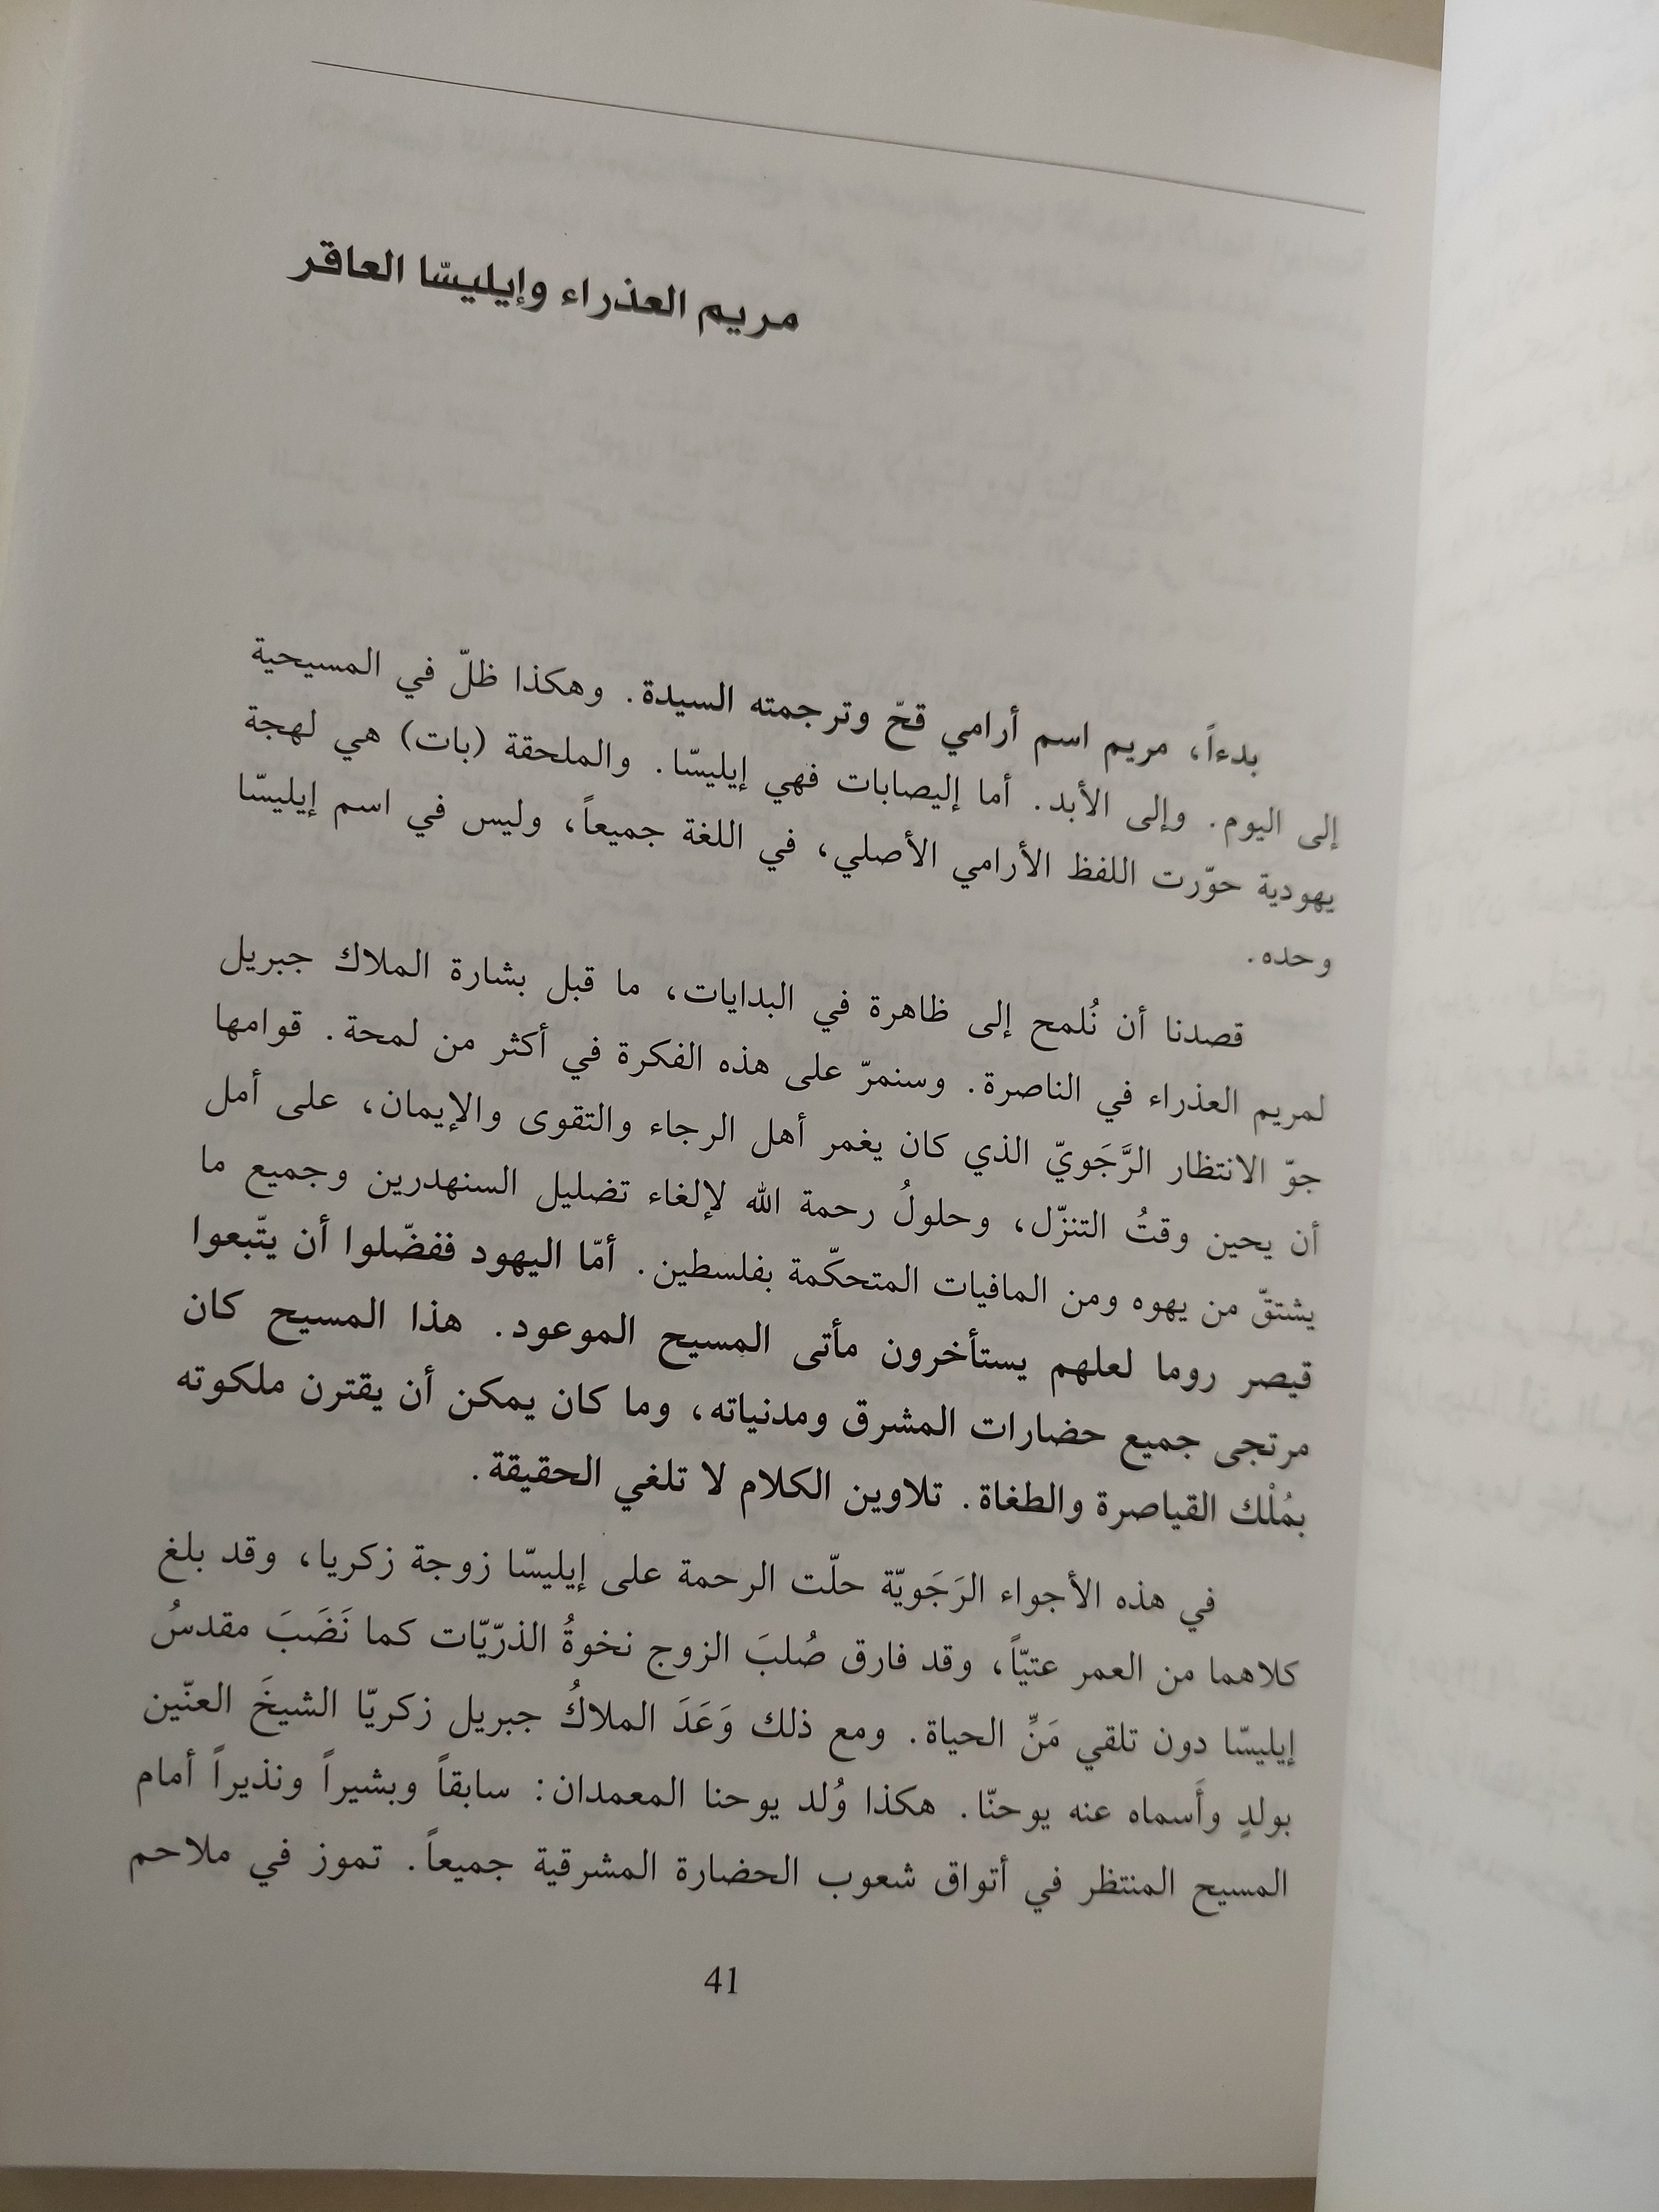 مريم العذراء وإيليسّا العاقر
بدءاً، مريم اسم أرامي قحّ وترجمته السيدة. وهكذا ظلّ في المسيحية
إلى اليوم. وإلى الأبد. أما إليصابات فهي إيليسّا. والملحقة (بات) هي لهجة
يهودية حوّرت اللفظ الأرامي الأصلي، في اللغة جميعاً، وليس في اسم إيليسّا
وحده.
قصدنا أن نُلمح إلى ظاهرة في البدايات، ما قبل بشارة الملاك جبريل
لمريم العذراء في الناصرة. وسنمرّ على هذه الفكرة في أكثر من لمحة. قوامها
جوّ الانتظار الرَّجَويّ الذي كان يغمر أهل الرجاء والتقوى والإيمان، على أمل
أن يحين وقتُ التنزّل، وحلولُ رحمة الله لإلغاء تضليل السنهدرين وجميع ما
يشتقّ من يهوه ومن المافيات المتحكّمة بفلسطين. أمّا اليهود ففضّلوا أن يتّبعوا
قيصر روما لعلهم يستأخرون مأتى المسيح الموعود. هذا المسيح كان
مرتجى جميع حضارات المشرق ومدنياته، وما كان يمكن أن يقترن ملكوته
بمُلْك القياصرة والطغاة. تلاوين الكلام لا تلغي الحقيقة.
في هذه الأجواء الرَجَويّة حلّت الرحمة على إيليسّا زوجة زكريا، وقد بلغ
كلاهما من العمر عتيّاً، وقد فارق صُلبَ الزوج نخوةُ الذرّيّات كما نَضَبَ مقدسُ
إيليسّا دون تلقي مَنِّ الحياة. ومع ذلك وَعَدَ الملاكُ جبريل زكريّا الشيخَ العنّين
بولدٍ وأَسماه عنه يوحنّا. هكذا وُلد يوحنا المعمدان: سابقاً وبشيراً ونذيراً أمام
المسيح المنتظر في أتواق شعوب الحضارة المشرقية جميعاً. تموز في ملاحم
41